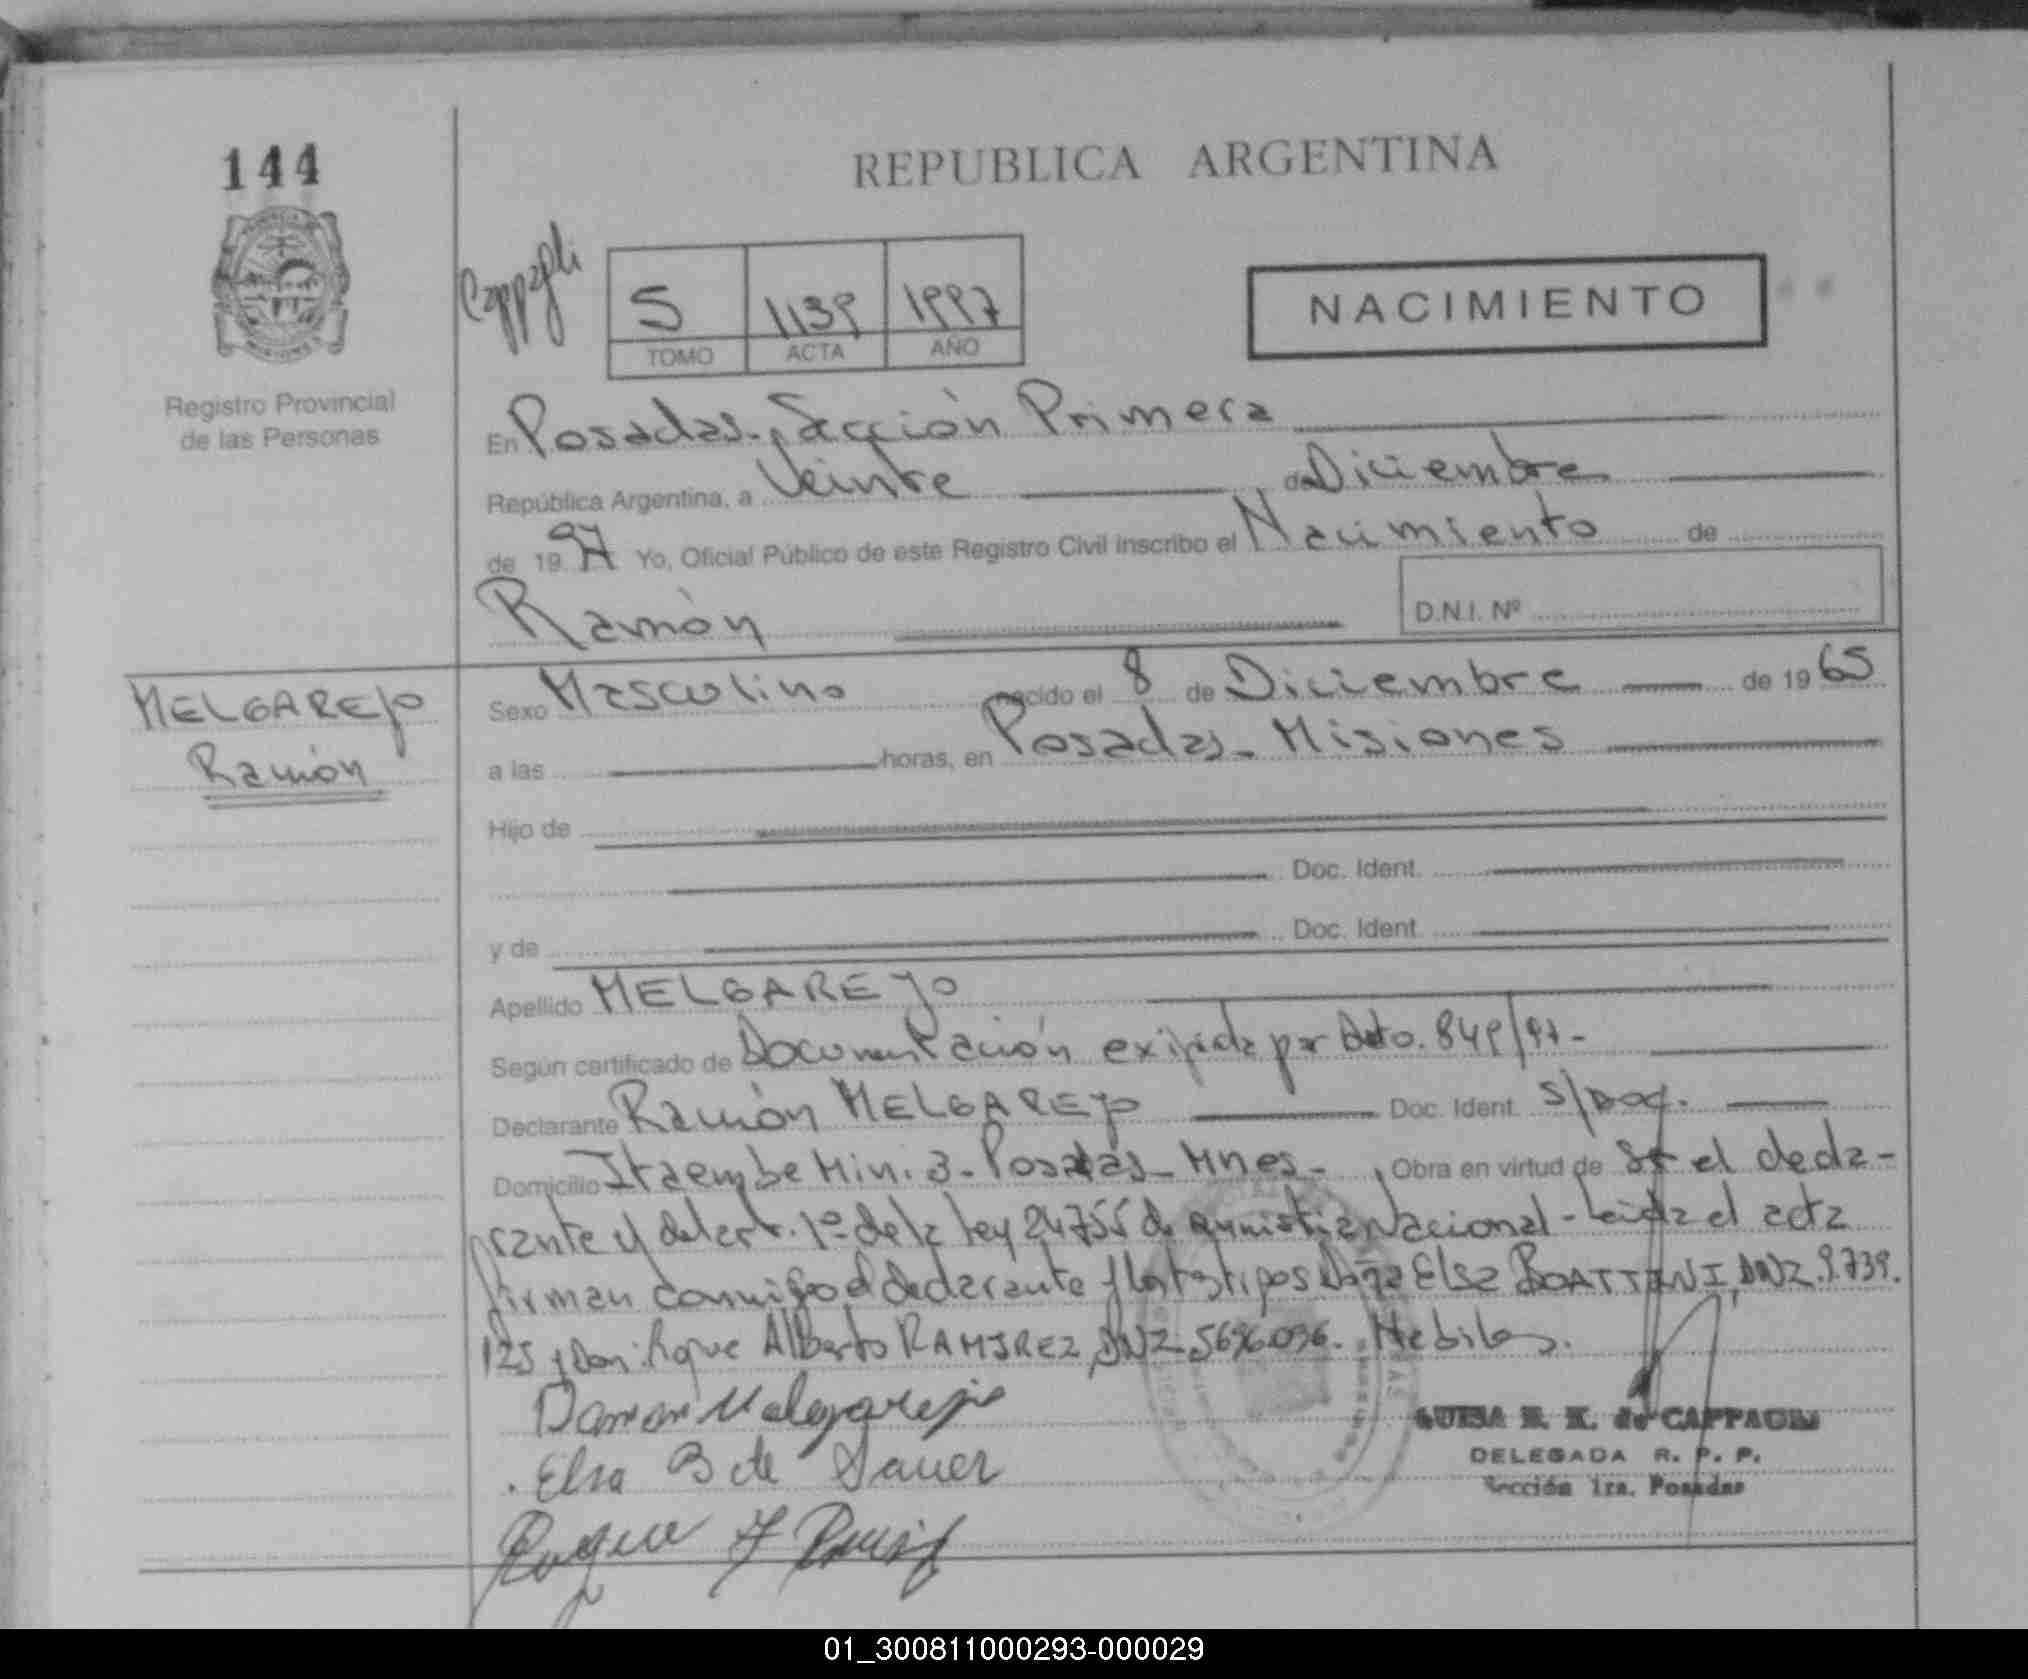 144
REPUBLICA ARGENTINA
Cappagli
5 1139 1997
TOMO ACTA AÑO
NACIMIENTO
Registro Provincial
de las Personas
En Posadas - Sección Primera
República Argentina, a Veinte de Diciembre
de 1997 Yo, Oficial Público de este Registro Civil inscribo el Nacimiento de
Ramón D.N.I. Nº
MELGAREJO
Ramón
Sexo Masculino nacido el 8 de Diciembre de 1965
a las horas, en Posadas - Misiones
Hijo de
Doc. Ident.
y de Doc. Ident.
Apellido MELGAREJO
Según certificado de Documentación exigida por Dto. 849/97-
Declarante Ramón MELGAREJO Doc. Ident. S/Doc.
Domicilio Itaembe Min. 3 - Posadas - Mnes - , Obra en virtud de ser el decla-
rante y del art. 1º de la ley 24755 de amnistia Nacional - Leida el acta
firman conmigo el declarante y los testigos Doña Elsa BOATTINI, DNI 9.739.
125 y Don Roque Alberto RAMIREZ, DNI 5696036. Habiles.
Ramon Melgarejo
Elsa B de Sauer
Roque
LUISA E. K. de CAPPAGLI
DELEGADA R. P. P.
Sección 1ra. Posadas
01_300811000293-000029